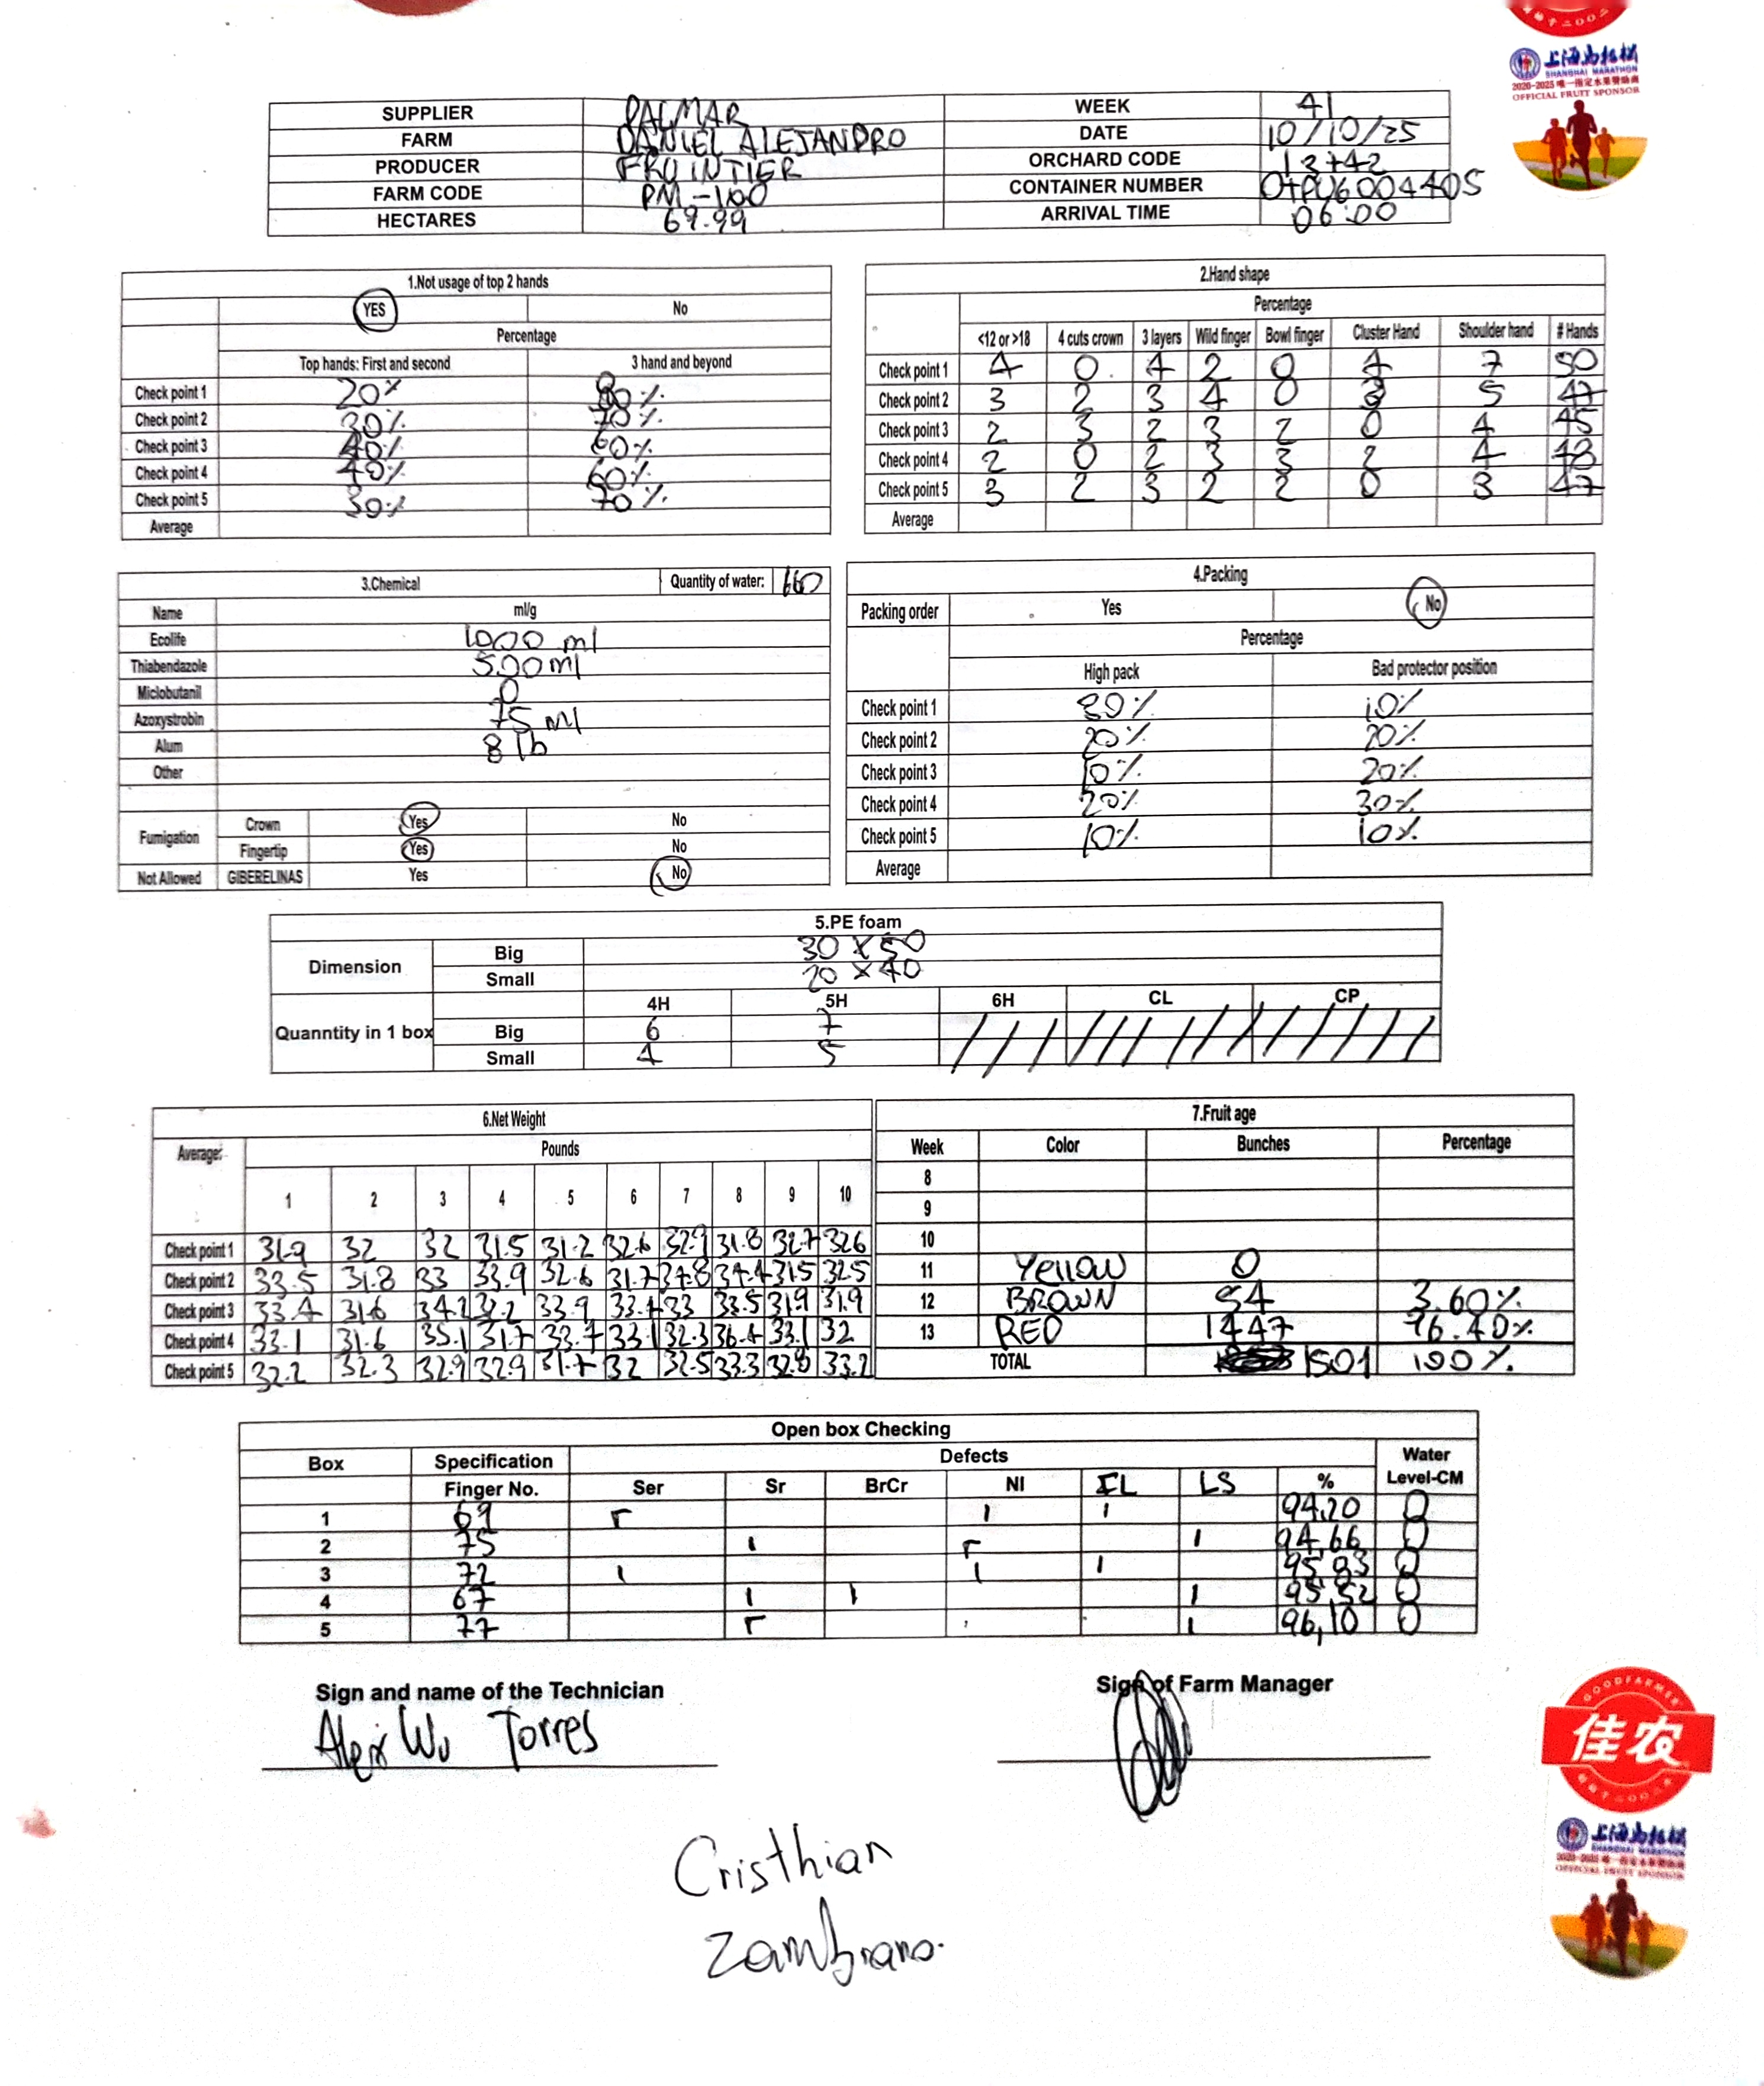 上海马拉松
SHANGHAI MARATHON
2020-2025 唯一指定水果赞助商
OFFICIAL FRUIT SPONSOR
SUPPLIER PALMAR WEEK 41
FARM DANIEL ALEJANDRO DATE 10/10/25
PRODUCER FRUINTIER ORCHARD CODE 13742
FARM CODE PM-100 CONTAINER NUMBER OTPU6004405
HECTARES 69.99 ARRIVAL TIME 06:00
1.Not usage of top 2 hands
YES No
Percentage
Top hands: First and second 3 hand and beyond
Check point 1 20% 80%
Check point 2 30% 70%
Check point 3 40% 60%
Check point 4 40% 60%
Check point 5 30% 70%
Average
2.Hand shape
Percentage
<12 or >18 4 cuts crown 3 layers Wild finger Bowl finger Cluster Hand Shoulder hand # Hands
Check point 1 4 0 4 2 0 4 7 50
Check point 2 3 2 3 4 0 3 5 47
Check point 3 2 3 2 3 2 0 4 45
Check point 4 2 0 2 3 3 2 4 48
Check point 5 3 2 3 2 2 0 3 47
Average
3.Chemical Quantity of water: 660
Name ml/g
Ecolife 1000 ml
Thiabendazole 500 ml
Miclobutanil 0
Azoxystrobin 75 ml
Alum 8 lb
Other
Fumigation Crown Yes No
Fingertip Yes No
Not Allowed GIBERELINAS Yes No
4.Packing
Packing order Yes No
Percentage
High pack Bad protector position
Check point 1 30% 10%
Check point 2 20% 20%
Check point 3 10% 20%
Check point 4 20% 30%
Check point 5 10% 10%
Average
5.PE foam
Dimension Big 30 X 50
Small 20 X 40
4H 5H 6H CL CP
Quanntity in 1 box Big 6 7
Small 4 5
6.Net Weight
Average: Pounds
1 2 3 4 5 6 7 8 9 10
Check point 1 31.9 32 32 31.5 31.2 32.6 32.9 31.8 32.7 32.6
Check point 2 33.5 31.8 33 33.9 32.6 31.7 34.4 31.5 32.5
Check point 3 33.4 31.6 34.2 33.9 33.4 33 33.5 31.9 31.9
Check point 4 33.1 31.6 35.1 31.7 33.7 33.1 32.3 36.4 33.1 32
Check point 5 32.2 32.3 32.9 32.9 31.7 32 32.5 33.3 32.8 33.2
7.Fruit age
Week Color Bunches Percentage
8
9
10
11 Yellow 0
12 BROWN 54 3.60%
13 RED 1447 96.40%
TOTAL 1501 100%
Open box Checking
Box Specification Defects Water
Finger No. Ser Sr BrCr NI FL LS % Level-CM
1 69 94,20 0
2 75 94,66 0
3 72 95,83 0
4 67 95,52 0
5 77 96,10 0
Sign and name of the Technician Sign of Farm Manager
Alex Wu Torres
Cristhian
Zambrano.
GOODFARMER
佳农
上海马拉松
SHANGHAI MARATHON
OFFICIAL FRUIT SPONSOR